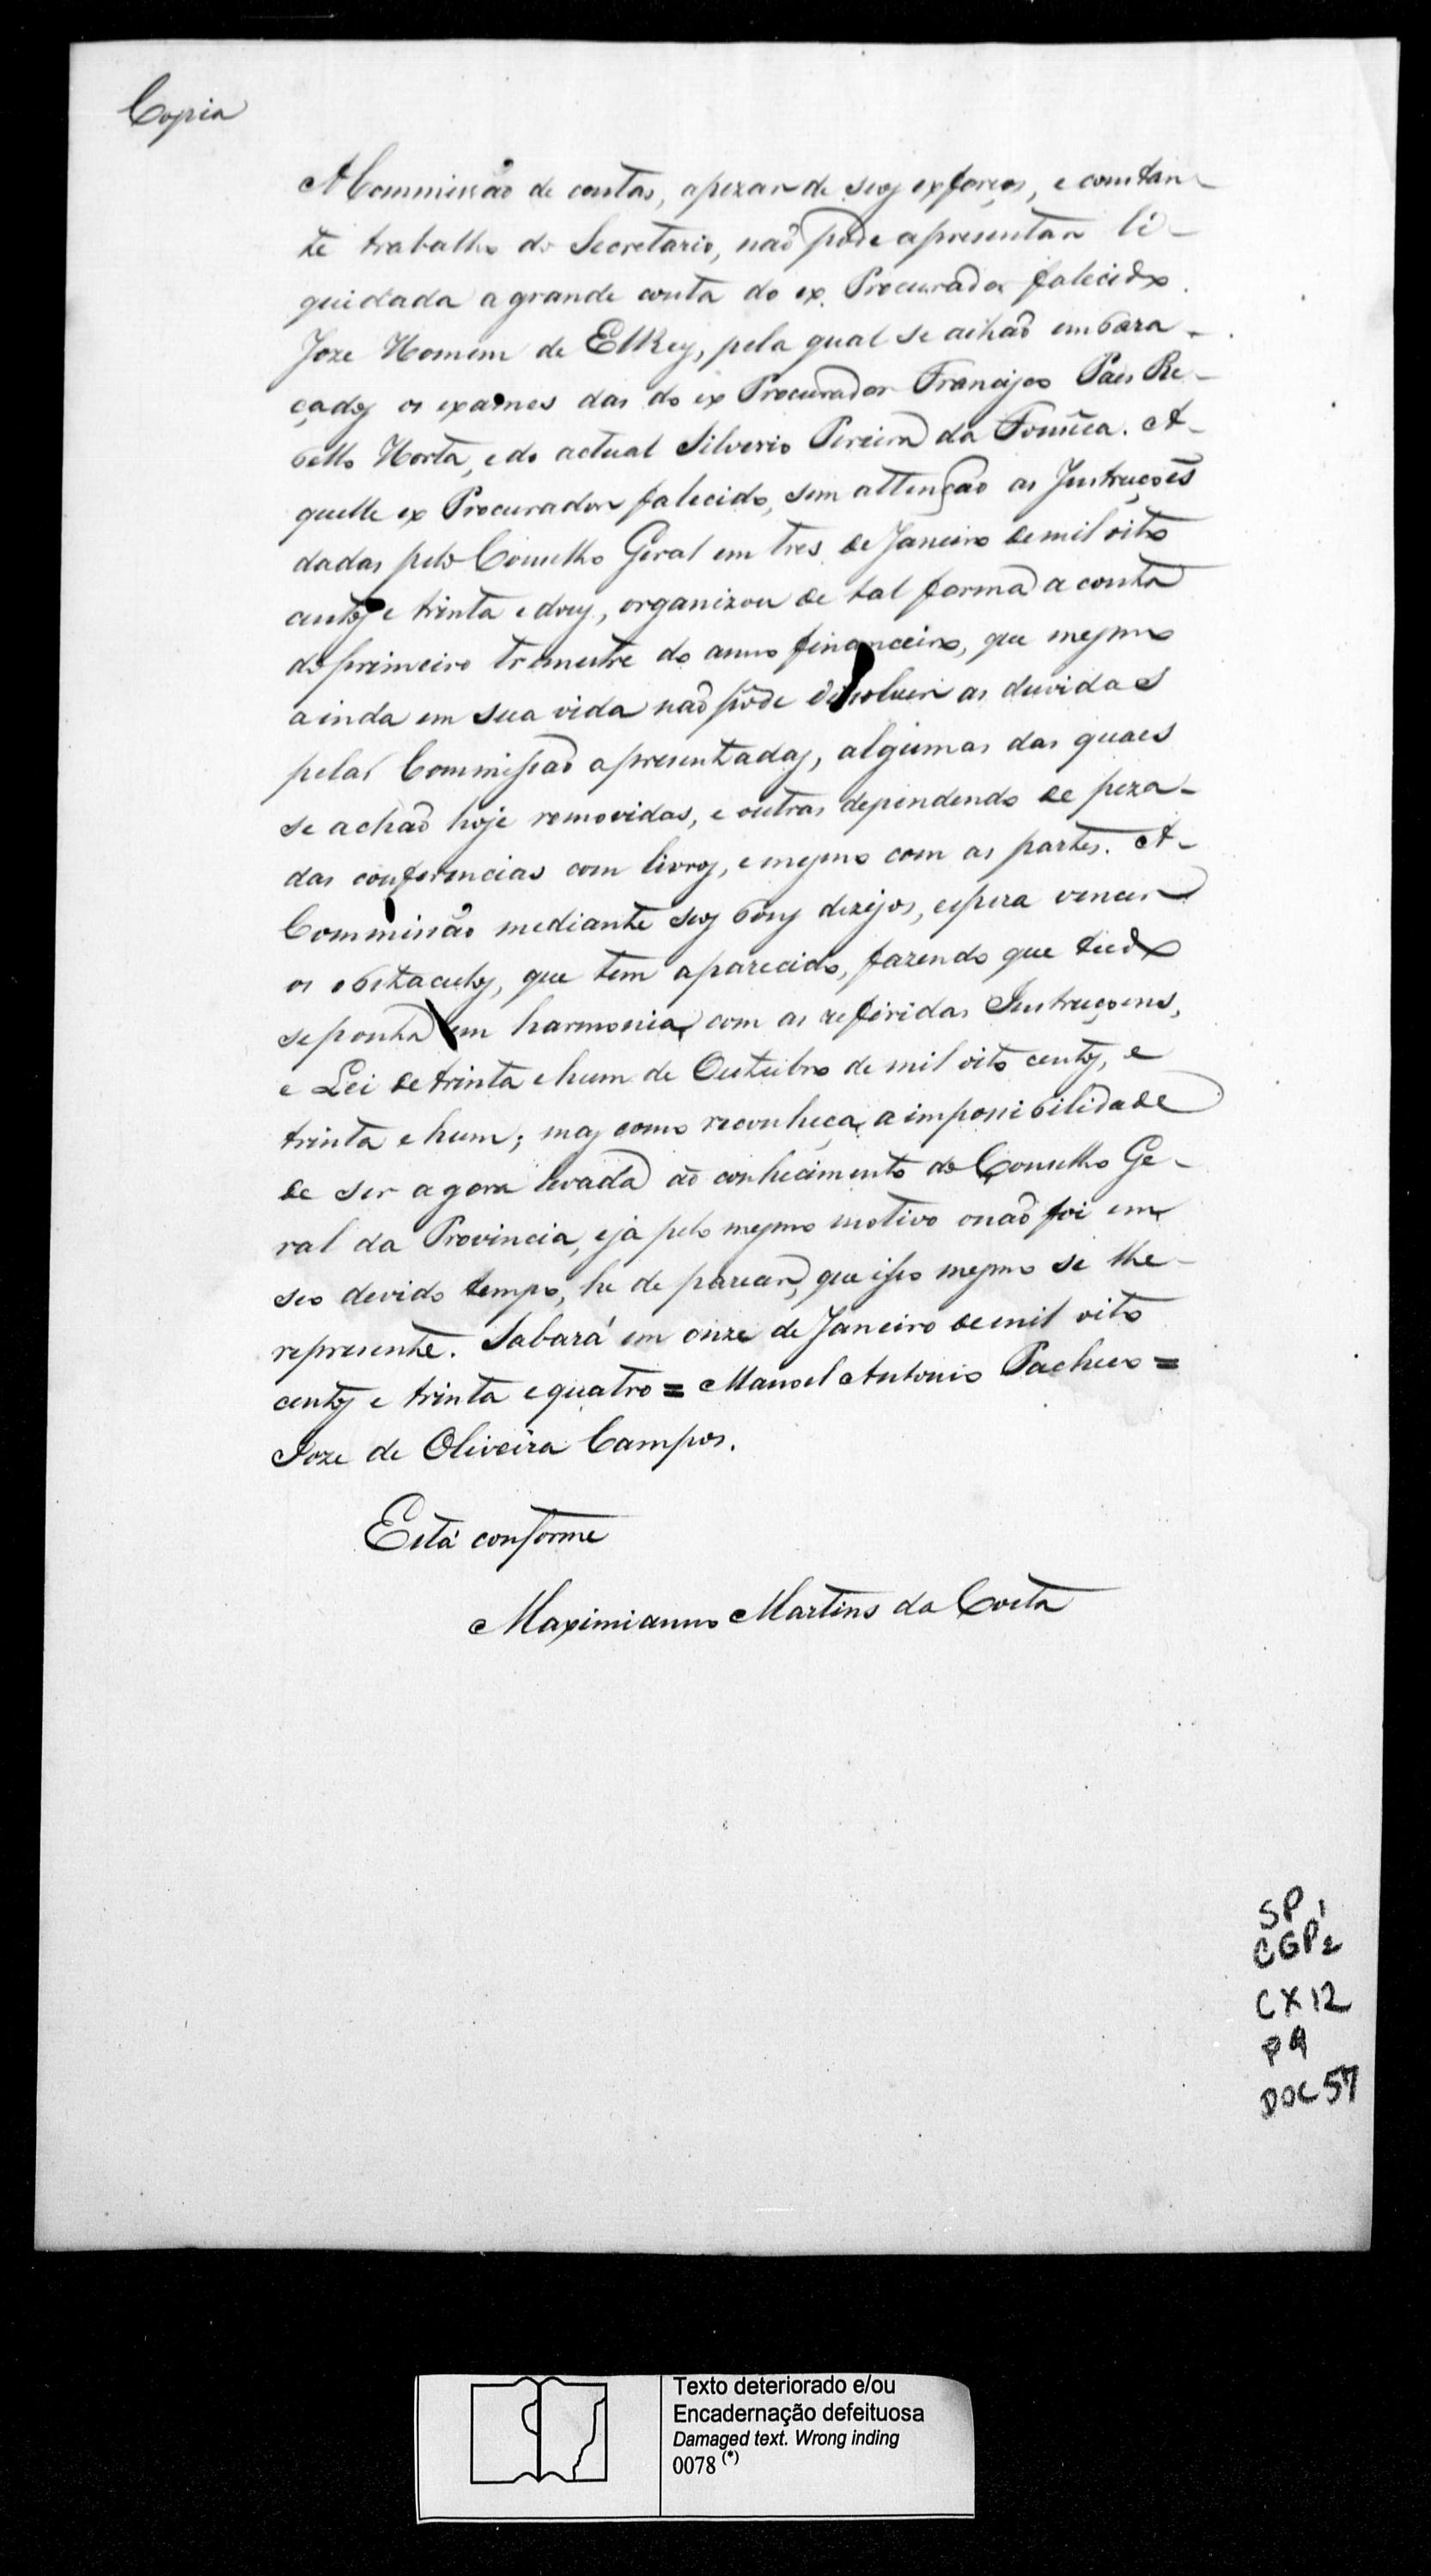 Copia
A Commissão de contas, apezar de seos exforços, e constan-
te trabalho do Secretario, não pode apresentar li-
quidada a grande conta do ex Procurador falecido
Joze Homem de ElRey, pela qual se achão embara-
çados os exames das do ex Procurador Francisco Paes Re-
bello Horta, e do actual Silverio Pereira da Fonseca. A-
quelle ex Procurador falecido, sem attenção as Instruções
dadas pelo Conselho Geral em tres de Janeiro de mil oito
centos e trinta e dous, organizou de tal forma a conta
do primeiro trimestre do anno financeiro, que mesmo
ainda em sua vida não pôde dissolver as duvidas
pela Commissão apresentadas, algumas das quaes
se achão hoje removidas, e outras dependendo de peza-
das conferencias com livros, e mesmo com as partes. A-
Commissão mediante seos bons dezejos, espera vencer
os obstaculos, que tem aparecido, fazendo que tudo
se ponha em harmonia com as referidas Instruçoens,
e Lei de trinta e hum de Outubro de mil oito centos, e
trinta e hum; mas como reconheça a impossibilidade
de ser agora levada ao conhecimento do Conselho Ge-
ral da Provincia, e já pelo mesmo motivo o não foi em
seo devido tempo, he de parecer, que isso mesmo se lhe
represente. Sabará em onze de Janeiro de mil oito
centos e trinta e quatro = Manoel Antonio Pacheco =
Joze de Oliveira Campos.
Está conforme
Maximianno Martins da Costa
SP 1
CGP 2
CX 12
P 9
DOC 57
Texto deteriorado e/ou
Encadernação defeituosa
Damaged text. Wrong inding
0078 (*)